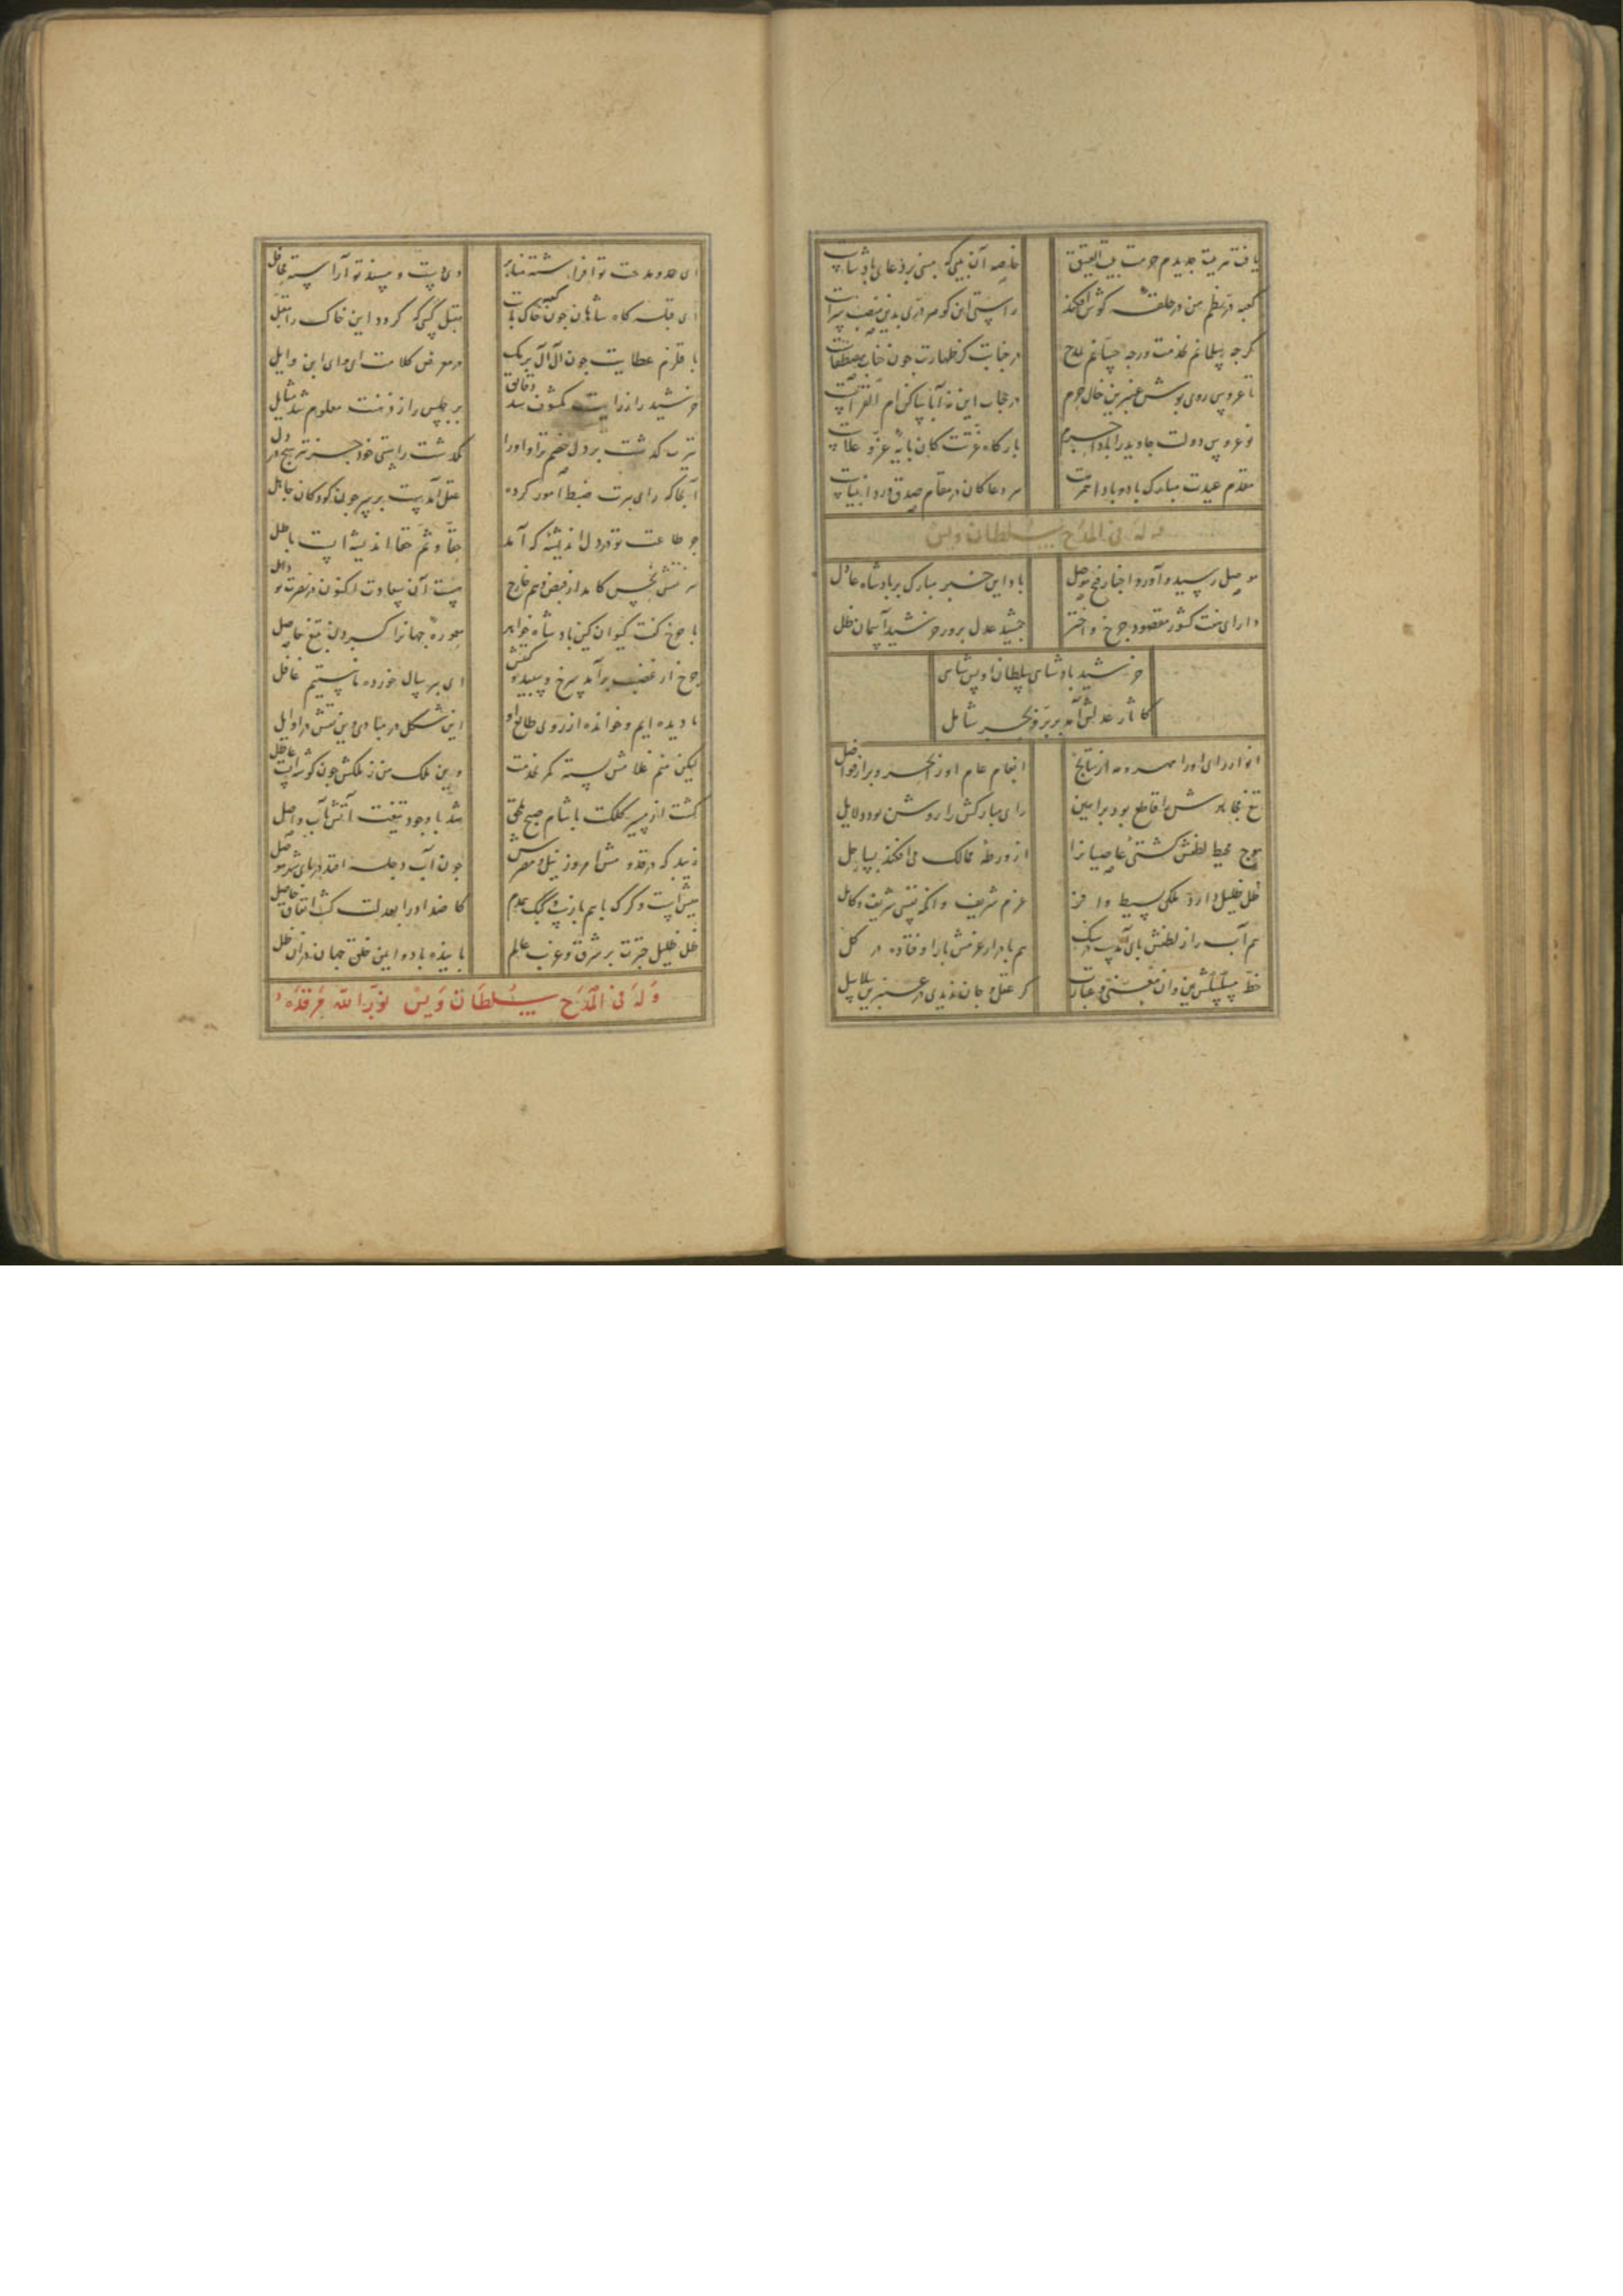 یافت تربیت جدیدم حرمت بیت العتیق خاصه آن بیتی که مبنی بر دعای پادشاست
کعبه در نظم من در حلقهٔ گوش افکند راستی این گوهر دری بدین منصب سزاست
گر چه سلمانم بخدمت ور چه حسانم بمدح در جنابت کز طهارت چون جناب مصطفاست
تا عروس روی پوش عنبرین خال حرم در حجاب این نه آبا پاکن ام القراست
نوعروس دولت جاوید را بادا حرم بارگاه عزتت کان پایهٔ عز و علاست
مقدم عیدت مبارک باد و بادا عمرت سر دعا کان در مقام صدق ورد انبیاست
وله فی المدح سلطان ویس
موصل رسید و آورد اخبار فتح موصل باد این خبر مبارک بر پادشاه عادل
دارای هفت کشور مقصود چرخ و اختر جمشید عدل پرور خورشید آسمان ظل
خورشید پادشاهی سلطان اویس شاهی
کاثار عدلش آمد بر بر و بحر شامل
انوار رای او را مهر و مه از نتایج انعام عام او را بحر و بر از فواضل
تیغ جهانش قاطع بود براهین رای مبارکش را روشن بود دلایل
موج محیط لطفش کشتی عاصیانرا از ورطهٔ ممالک می افکند بساحل
ظل ظلیل دارد ملکی بسیط وافر عزم شریف وانگه نفسی شریف و کامل
هم آب را ز لطفش پای آمدست در سنگ هم باد را ز عزمش بار اوفتاده در گل
خط مسلسلش بین وان معنی و عبارت گر عقل و جان ندیدی در عنبرین سلاسل
ای حمد و مدحت تو افراشته منابر وی است و مسند تو آراسته محافل
ای قبله گاه شاهان چون کعبه خاک پایت مقبل کسی که گردد این خاک را مقبل
با قلزم عطایت چون آل آل برمک در معرض کلامت ای وای ابن وایل
خورشید را ز رایت مکشوف شد دقایق برجیس را ز ذهنت معلوم شد مسایل
تیرت گذشت بر دل خصم ترا و او را نگذشت راستی خود جز تیر هیچ در دل
آنجا که رای پیرت ضبط امور کرده عقل آمدست بر سر چون کودکان جاهل
جز طاعت تو در دل اندیشهٔ که آمد حقا و ثم حقا اندیشه است باطل
هر نقش نحس کامد از قبض و هم خارج هست آن سعادت اکنون در نصرت تو داخل
با چرخ گفت کیوان کین پادشاه خواهد معمورهٔ جهانرا کردن بتیغ حاصل
چرخ از غضب برآمد سرخ و سپید و گفتش ای پیر سال خورده ما نیستیم غافل
ما دیده ایم و خوانده از روی طالع او این شکل در مبادی وین نقش در اوایل
لیکن منم غلامش بسته کمر بخدمت وین ملک من ز ملکش چون گوشه است عاطل
گشت از سر کلکت با شام صبح ملحق شد با وجود تیغت آتش بآب واصل
زیبد که در قدومش امروز نیل و مصرش چون آب دجله افتد در پای شهر موصل
میش است و گرگ با هم باز است و کبک همدم کاضداد را بعدلت گشت اتفاق حاصل
ظل ظلیل چترت بر شرق و غرب عالم پاینده باد و ایمن خلق جهان در آن ظل
وله فی المدح سلطان ویس نور الله مرقده